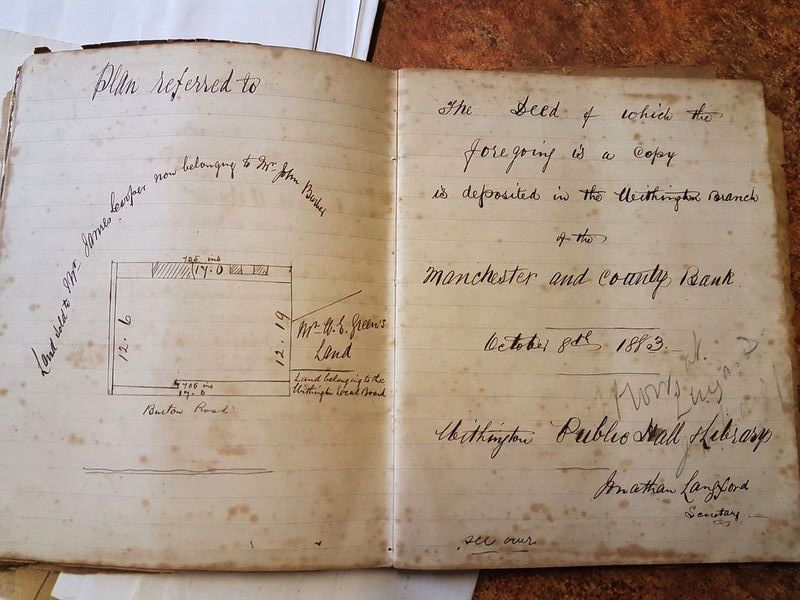 Plan referred to
Land sold to Mr James Cooper now belonging to Mr John
17.0
12.6
12.19
Mr W. E. Green's
Land
Land belonging to the
Withington Local Board
17.0
Burton Road
The Deed of which the
foregoing is a copy
is deposited in the Withington Branch
of the
Manchester and County Bank.
October 8th 1883
Withington Public Hall & Library
Jonathan Langford
Secretary
see over